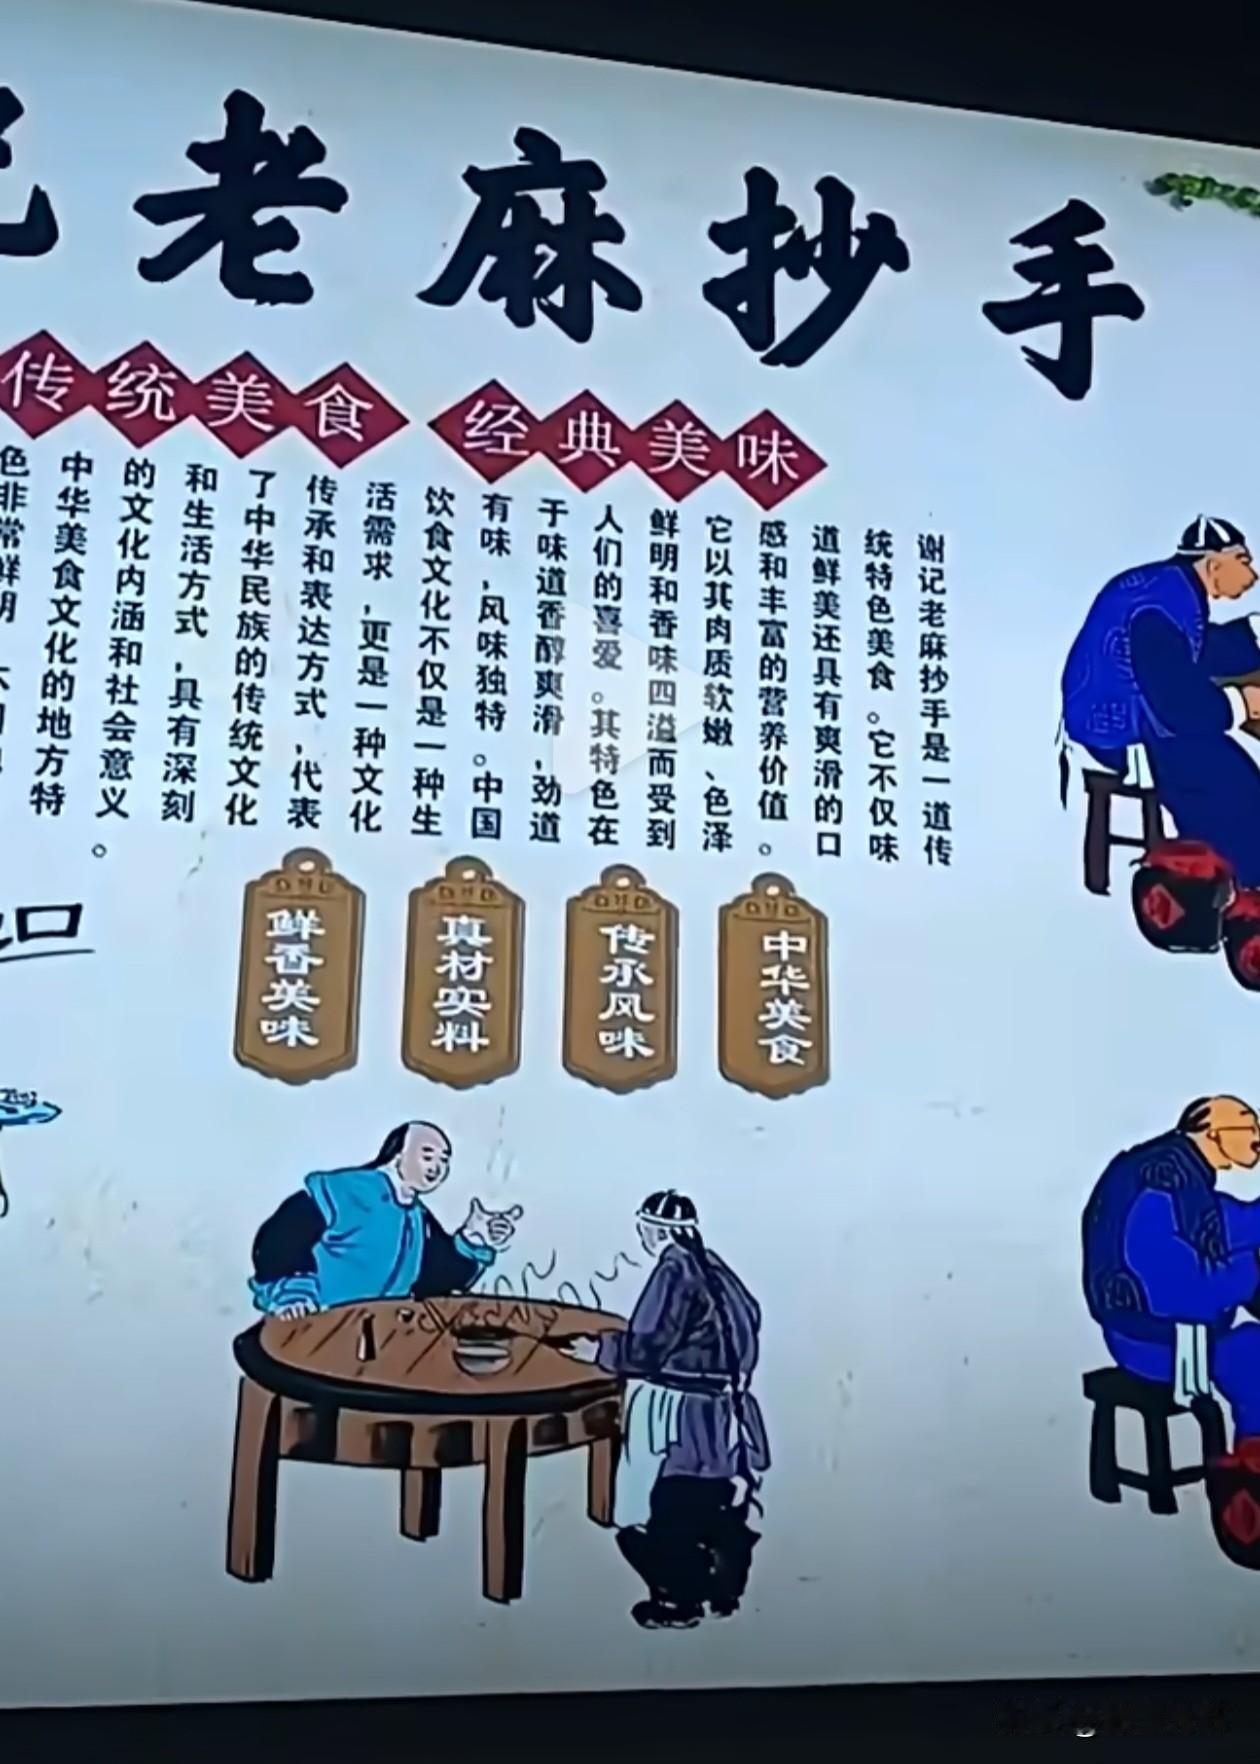 老麻抄手
传统美食 经典美味
谢记老麻抄手是一道传
统特色美食。它不仅味
道鲜美还具有爽滑的口
感和丰富的营养价值。
它以其肉质软嫩、色泽
鲜明和香味四溢而受到
人们的喜爱。其特色在
于味道香醇爽滑,劲道
有味,风味独特。中国
饮食文化不仅是一种生
活需求,更是一种文化
传承和表达方式,代表
了中华民族的传统文化
和生活方式,具有深刻
的文化内涵和社会意义。
中华美食文化的地方特
色非常鲜明
中华美食
传承风味
真材实料
鲜香美味
口